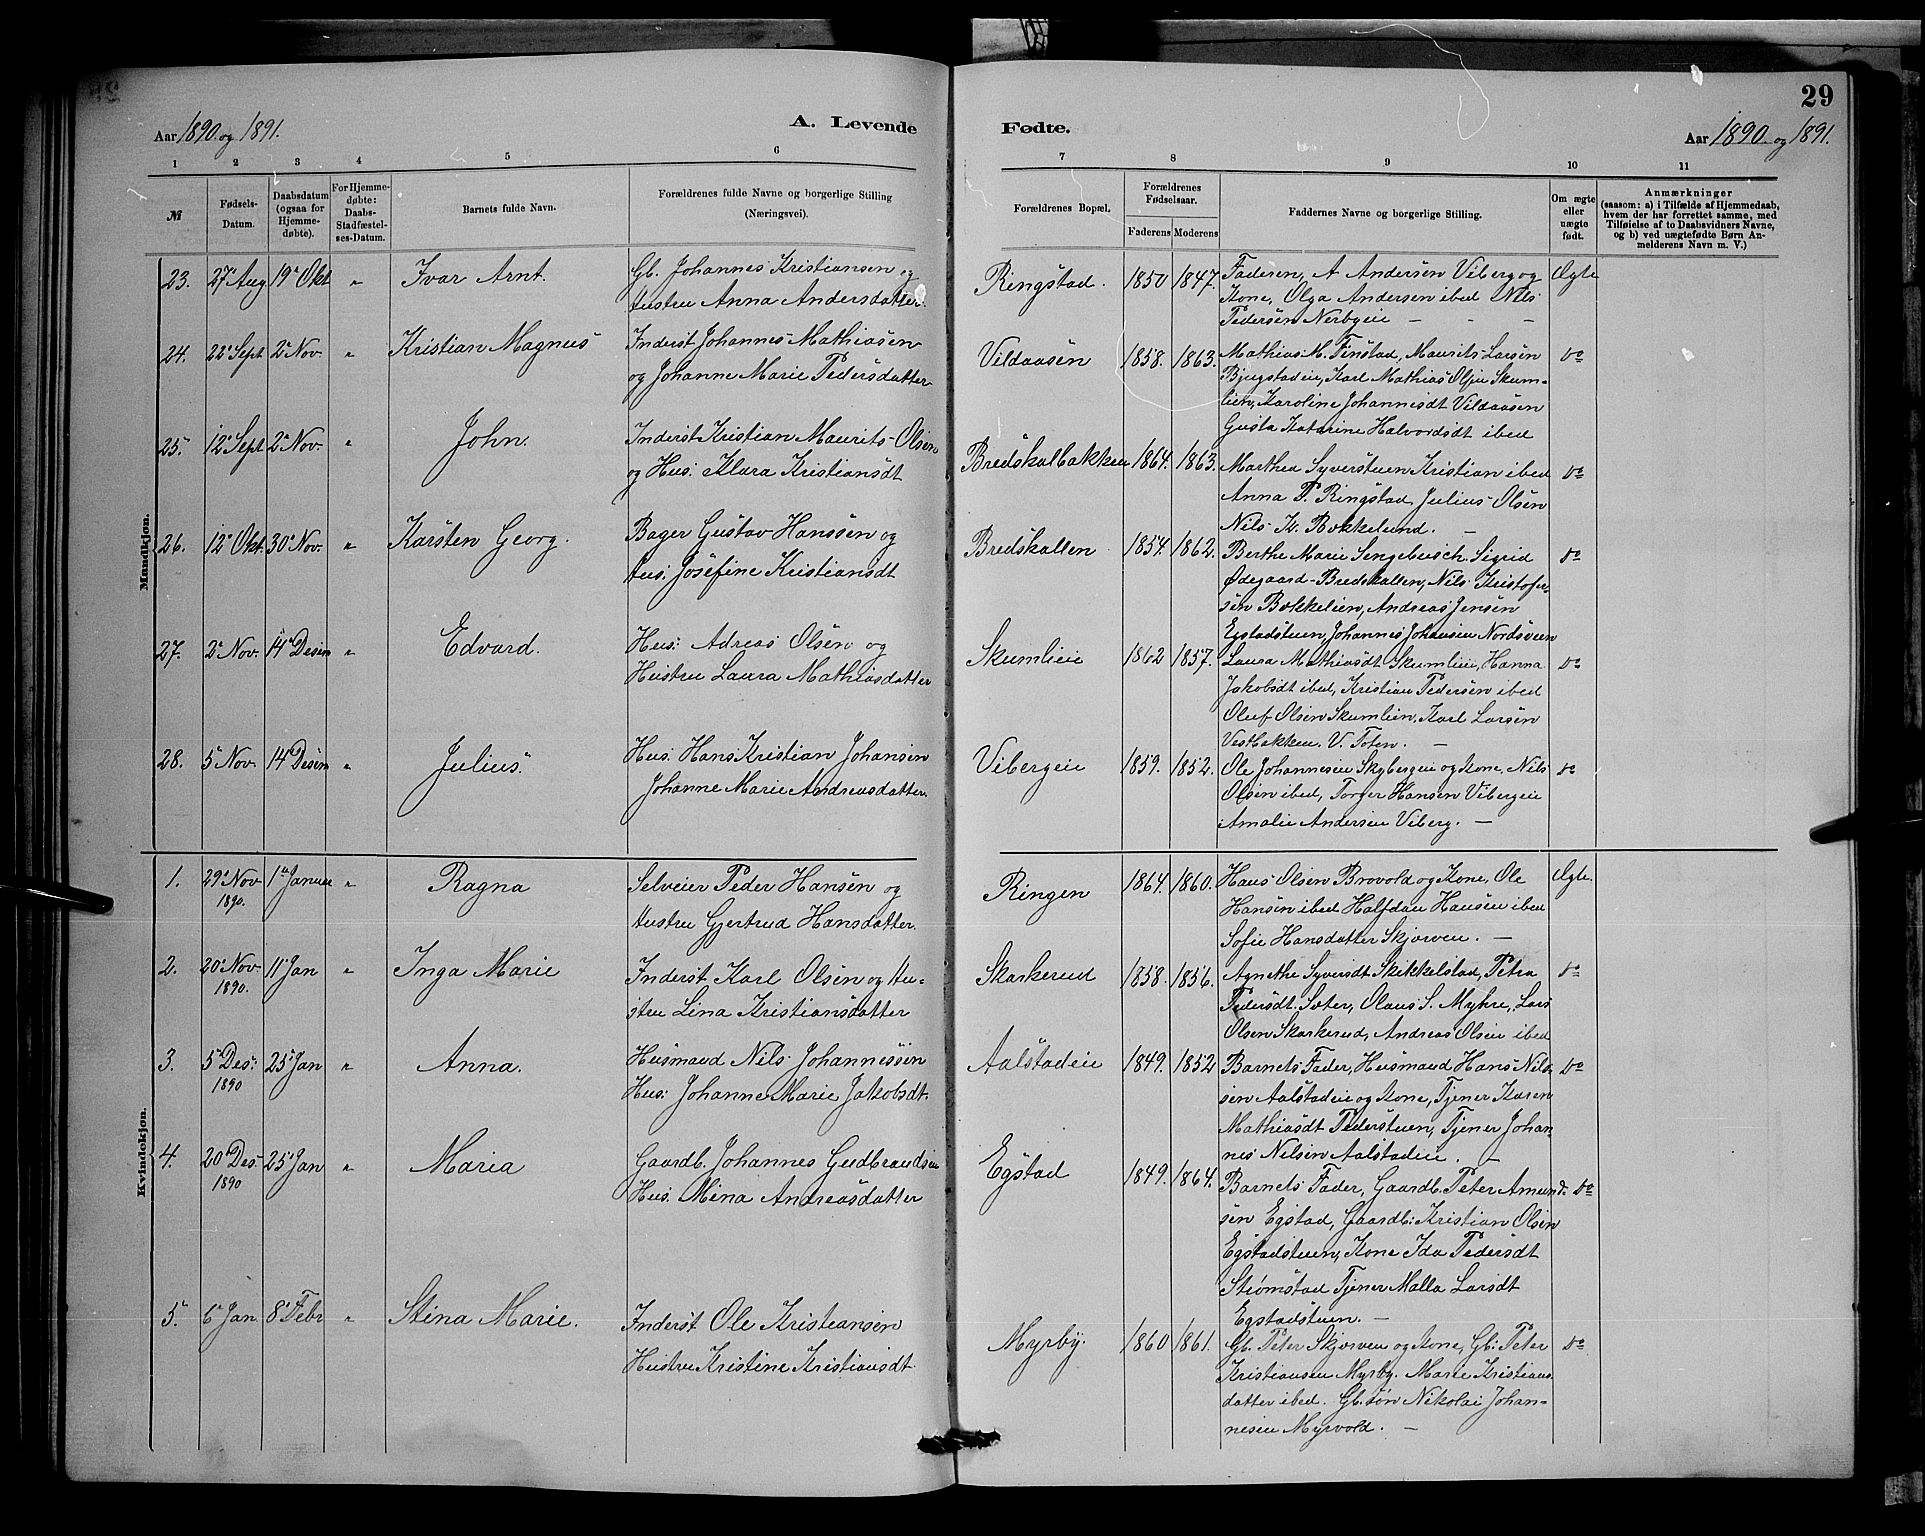 29
Aar 1890 og 1891.
A. Levende
Fødte.
Aar 1890 og 1891.
1 2 3 4 5 6 7 8 9 10 11
№
Fødsels-
Datum.
Daabsdatum
(ogsaa for
Hjemme-
døbte).
For Hjemme-
døbte:
Daabs-
Stadfæstel-
ses-Datum.
Barnets fulde Navn.
Forældrenes fulde Navne og borgerlige Stilling
(Næringsvei).
Forældrenes Bopæl.
Forældrenes
Fødselsaar.
Faderens Moderens
Faddernes Navne og borgerlige Stilling.
Om ægte
eller
uægte
født.
Anmærkninger
(saasom: a) i Tilfælde af Hjemmedaab,
hvem der har forrettet samme, med
Tilføielse af to Daabsvidners Navne,
og b) ved uægtefødte Børn An-
melderens Navn m. V.)
Mandkjøn.
23. 27 Aug 19 Okt " Ivar Arnt.
Gb. Johannes Kristiansen og
Hustru Anna Andersdatter
Ringstad. 1850 1847.
Faderen, A Andersen Viberg og
Kone, Olga Andersen ibed Nils
Pedersen Nerbyeie — - —
Ægte
24. 22 Sept 2 Nov. " Kristian Magnus
Inderst Johannes Mathiasen
og Johanne Marie Pedersdatter
Vildaasen 1858. 1863.
Mathias M. Finstad, Maurits Larsen
Bjugstadeie, Karl Mathias Olsen Skum-
lien, Karoline Johannesdt Vildaasen
Gusta Katarine Halvordsdt ibed
Do
25. 12 Sept 2 Nov. " John.
Inderst Kristian Maurits Olsen
og Hus: Klara Kristiansdt
Bredskalbakken 1864. 1863.
Marthea Syverstuen Kristian ibed
Anna P. Ringstad Julius Olsen
Nils K. Bokkelund. —
Do
26. 12 Okt. 30 Nov. " Karsten Georg.
Bager Gustav Hanssen og
Hus: Josefine Kristiansdt
Bredskallen 1854. 1862.
Berthe Marie Sengebusch Sigrid
Ødegaard Bredskallen, Nils Kristofer-
sen Bokkelien, Andreas Jensen
Egstadstuen, Johannes Johansen Nordsveen
Do
27. 2 Nov. 14 Desem " Edvard.
Hus: Adreas Olsen og
Hustru Laura Mathiasdatter
Skumlieie 1862 1857.
Laura Mathiasdt Skumlieie, Hanna
Jakobsdt ibed, Kristian Pedersen ibed
Oluf Olsen Skumlien, Karl Larsen
Vestbakken. V. Toten. —
Do
28. 5 Nov. 14 Desem " Julius.
Hus. Hans Kristian Johansen
Johanne Marie Andreasdatter.
Vibergeie 1859. 1852.
Ole Johannesen Skybergeie og Kone, Nils
Olsen ibed, Torger Hansen Vibergeie
Amalie Andersen Viberg. —
do
Kvindekjøn.
1. 29 Nov 1890. 1 Januar " Ragna
Selveier Peder Hansen og
Hustru Gjertrud Hansdatter.
Ringen 1864. 1860.
Hans Olsen Brovold og Kone, Ole
Hansen ibed Halfdan Hansen ibed
Sofie Hansdatter Skjørven. —
Ægte.
2. 20 Nov. 1890. 11 Jan " Inga Marie
Inderst Karl Olsen og Hu-
stru Lina Kristiansdatter
Skarkerud 1858. 1856.
Agnethe Syversdt Skikkelstad, Petra
Pedersdt. Sæter, Olaus S. Myhre, Lars
Olsen Skarkerud, Andreas Olsen ibed
Do
3. 5 Des: 1890 25 Jan " Anna.
Husmand Nils Johannessen
Hus: Johanne Marie Jakobsdt.
Aalstadeie 1849. 1852
Barnets Fader, Husmand Hans Nils-
sen Aalstadeie og Kone, Tjener Karen
Mathiasdt Pederstuen, Tjener Johan-
nes Nilsen Aalstadeie. —
Do
4. 20 Des. 1890 25 Jan " Maria
Gaardb. Johannes Gudbrandsen
Hus. Mina Andreasdatter
Egstad 1849. 1864.
Barnets Fader, Gaardb. Peter Amund-
sen Egstad, Gaardb: Kristian Olsen
Egstadstuen, Kone Ida Pedersdt
Strømstad Tjener Malla Larsdt
Egstadstuen. —
Do
5. 6 Jan 8 Febr " Stina Marie.
Inderst Ole Kristiansen
Hustru Kristine Kristiansdt
Myrby. 1860 1861.
Gb. Peter Skjørven og Kone, Gb: Peter
Kristiansen Myrby. Marie Kristians-
datter ibed. Gb. søn Nikolai Johan-
nesen Myrvold. —
Do